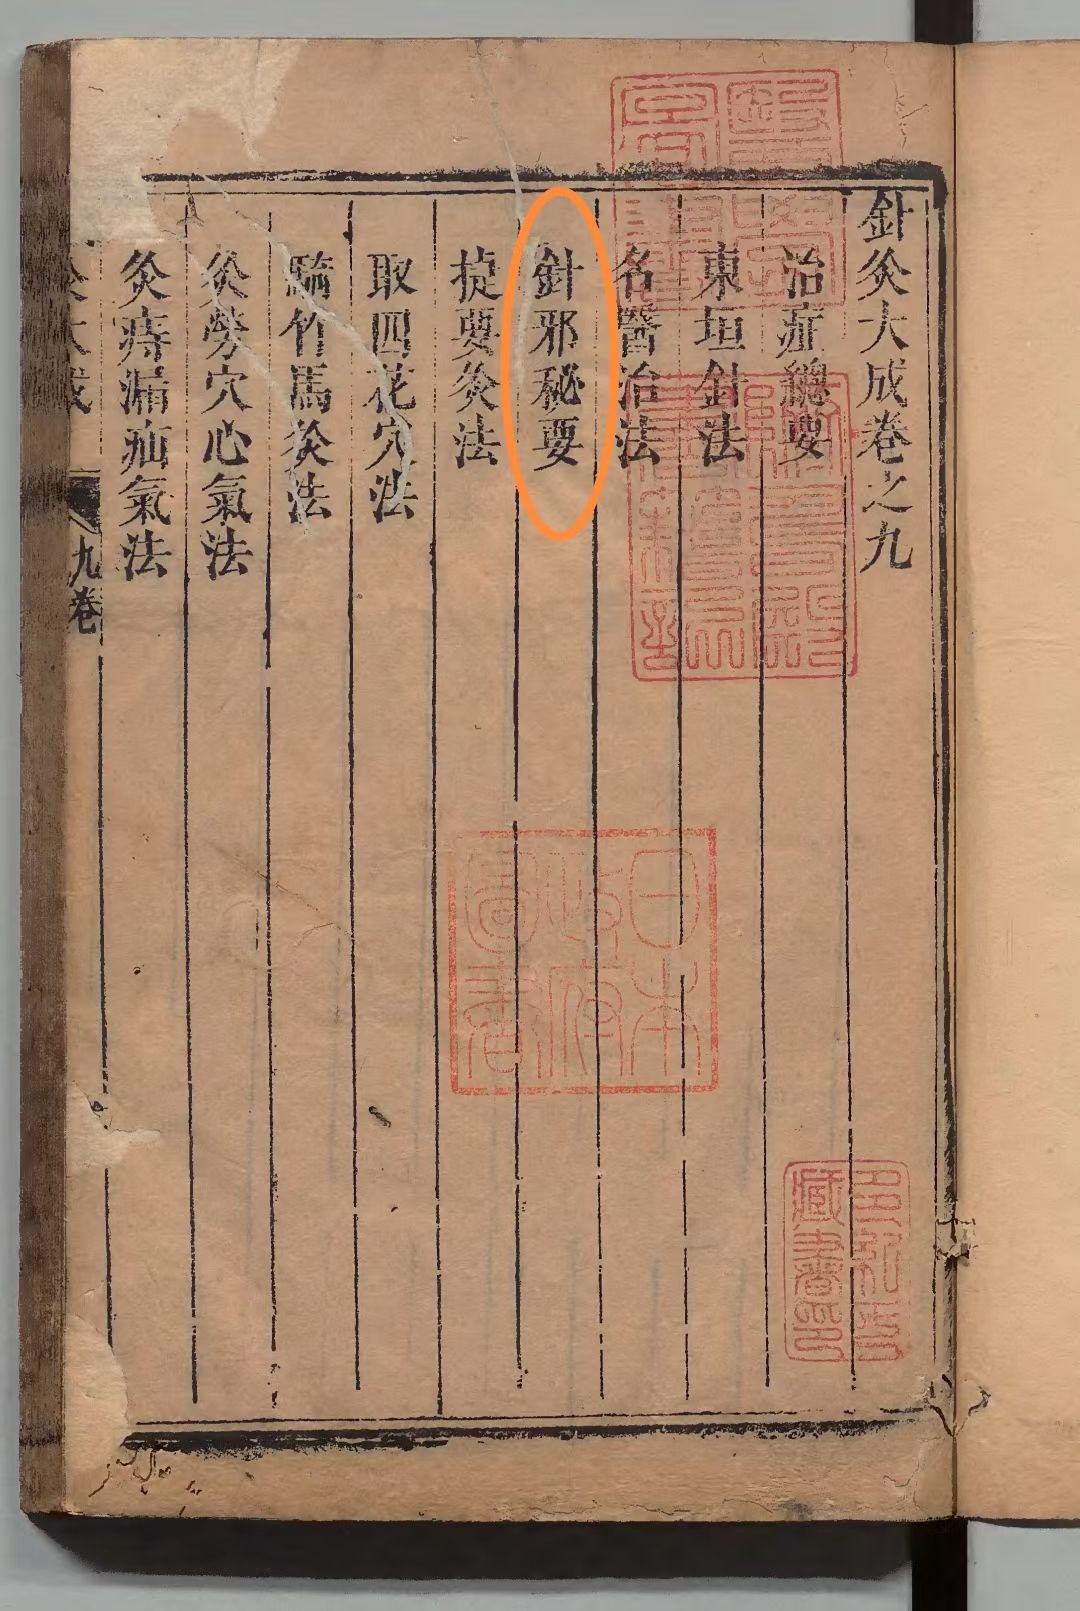 針灸大成卷之九
治症總要
東垣針法
名醫治法
針邪秘要
捷要灸法
取四花穴法
騎竹馬灸法
灸勞穴心氣法
灸痔漏疝氣法
灸大成
九卷
日本
政府
圖書
藏書印